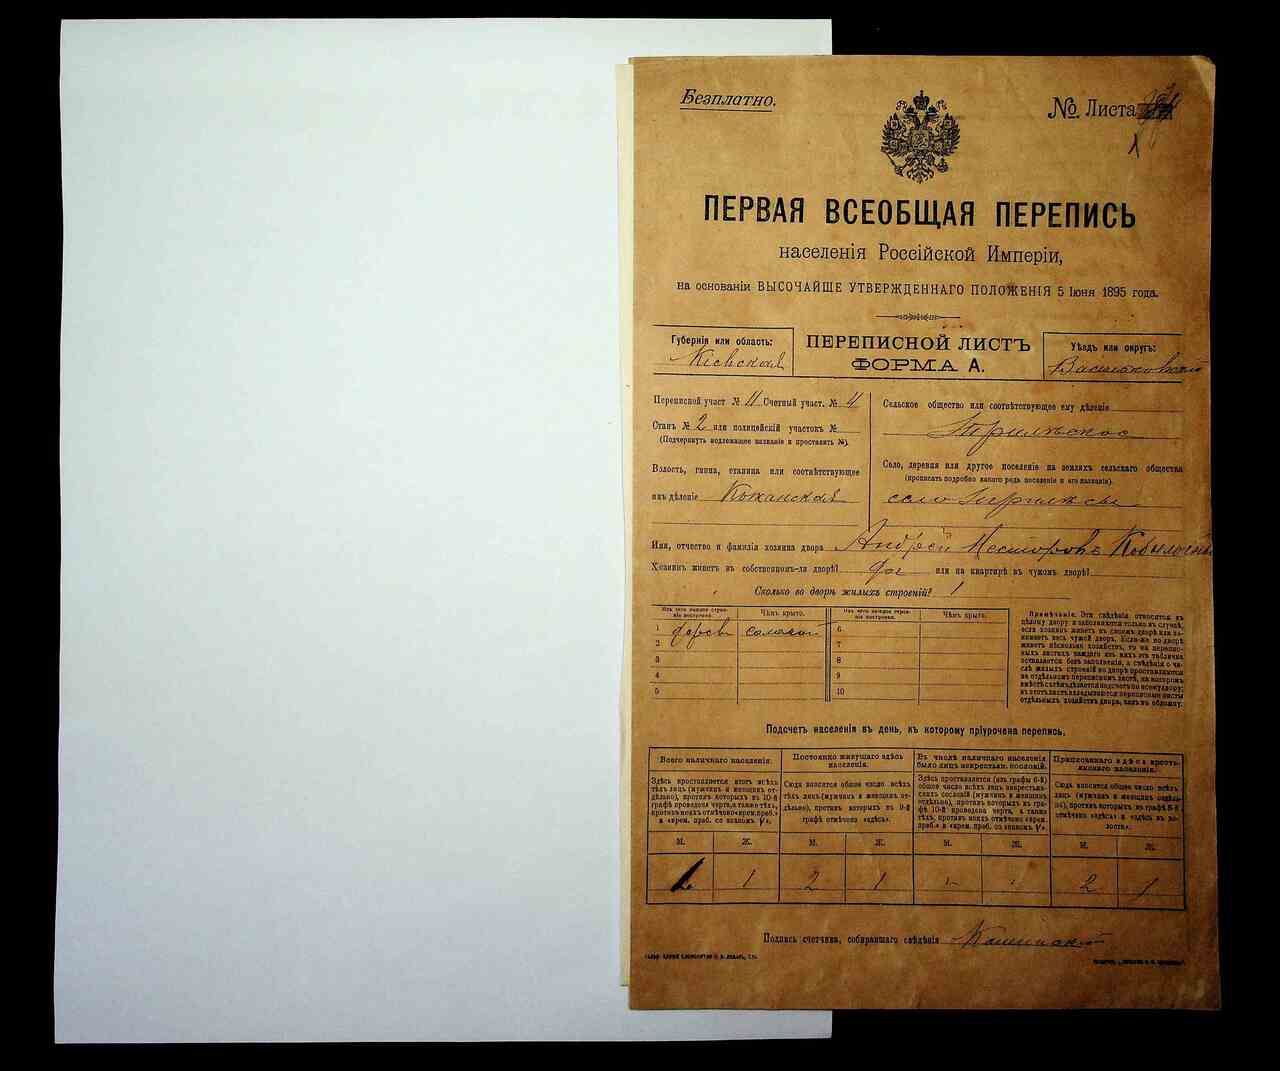 Безплатно.
№ Листа
1
ПЕРВАЯ ВСЕОБЩАЯ ПЕРЕПИСЬ
населенія Россійской Имперіи,
на основаніи ВЫСОЧАЙШЕ УТВЕРЖДЕННАГО ПОЛОЖЕНІЯ 5 Іюня 1895 года.
Губернія или область:
Кіевская
ПЕРЕПИСНОЙ ЛИСТЪ
ФОРМА А.
Уѣздъ или округъ:
Васильковскій
Переписной участ № 11 Счетный участ. № 4
Станъ № 2 или полицейскій участокъ №
(Подчеркнуть подлежащее названіе и проставить №).
Волость, гмина, станица или соотвѣтствующее
имъ дѣленіе Кожанская
Сельское общество или соотвѣтствующее ему дѣленіе
Село, деревня или другое поселеніе на земляхъ сельскаго общества
(прописать подробно какого рода поселеніе и его названіе).
село
Имя, отчество и фамилія хозяина двора Андрей Несторовъ
Хозяинъ живетъ въ собственномъ-ли дворѣ? да или на квартирѣ въ чужомъ дворѣ?
Сколько во дворѣ жилыхъ строеній? 1
Изъ чего каждое строеніе построено.
Чѣмъ крыто.
Изъ чего каждое строеніе построено.
Чѣмъ крыто.
1 дерев соломой 6
2 7
3 8
4 9
5 10
Примѣчаніе. Эти свѣдѣнія относятся къ
цѣлому двору и заполняются только въ случаѣ,
если хозяинъ живетъ въ своемъ дворѣ или занимаетъ весь чужой дворъ. Если-же во дворѣ
живетъ нѣсколько хозяйствъ, то на переписныхъ листахъ каждаго изъ нихъ эта табличка
оставляется безъ заполненія, а свѣдѣнія о числѣ жилыхъ строеній во дворѣ проставляются
на отдѣльномъ переписномъ листѣ, на которомъ
вмѣстѣ съ тѣмъ дѣлается подсчетъ по всему двору;
въ этотъ листъ вкладываются переписные листы
отдѣльныхъ хозяйствъ двора, какъ въ обложку.
Подсчетъ населенія въ день, къ которому пріурочена перепись.
Всего наличнаго населенія.
Здѣсь проставляется итогъ всѣхъ
тѣхъ лицъ (мужчинъ и женщинъ отдѣльно), противъ которыхъ въ 10-й
графѣ проведена черта, а также тѣхъ,
противъ коихъ отмѣчено «врем. преб.»
Постоянно живущаго здѣсь
населенія.
Сюда вносится общее число всѣхъ
тѣхъ лицъ (мужчинъ и женщинъ отдѣльно), противъ которыхъ въ 9-й
графѣ отмѣчено «здѣсь».
Въ числѣ наличнаго населенія
было лицъ некрестьян. сословій.
Здѣсь проставляется (изъ графы 6-й)
общее число всѣхъ лицъ некрестьянскихъ сословій (мужчинъ и женщинъ
отдѣльно), противъ которыхъ въ графѣ 10-й проведена черта, а также
тѣхъ, противъ коихъ отмѣчено «врем.
Приписаннаго здѣсь крестьянскаго населенія.
Сюда вносится общее число всѣхъ
лицъ (мужчинъ и женщинъ отдѣльно), противъ которыхъ въ графѣ 8-й
отмѣчено «здѣсь» и «здѣсь въ волости».
М. Ж. М. Ж. М. Ж. М. Ж.
1 2 1 2 1
Подпись счетчика, собиравшаго свѣдѣнія